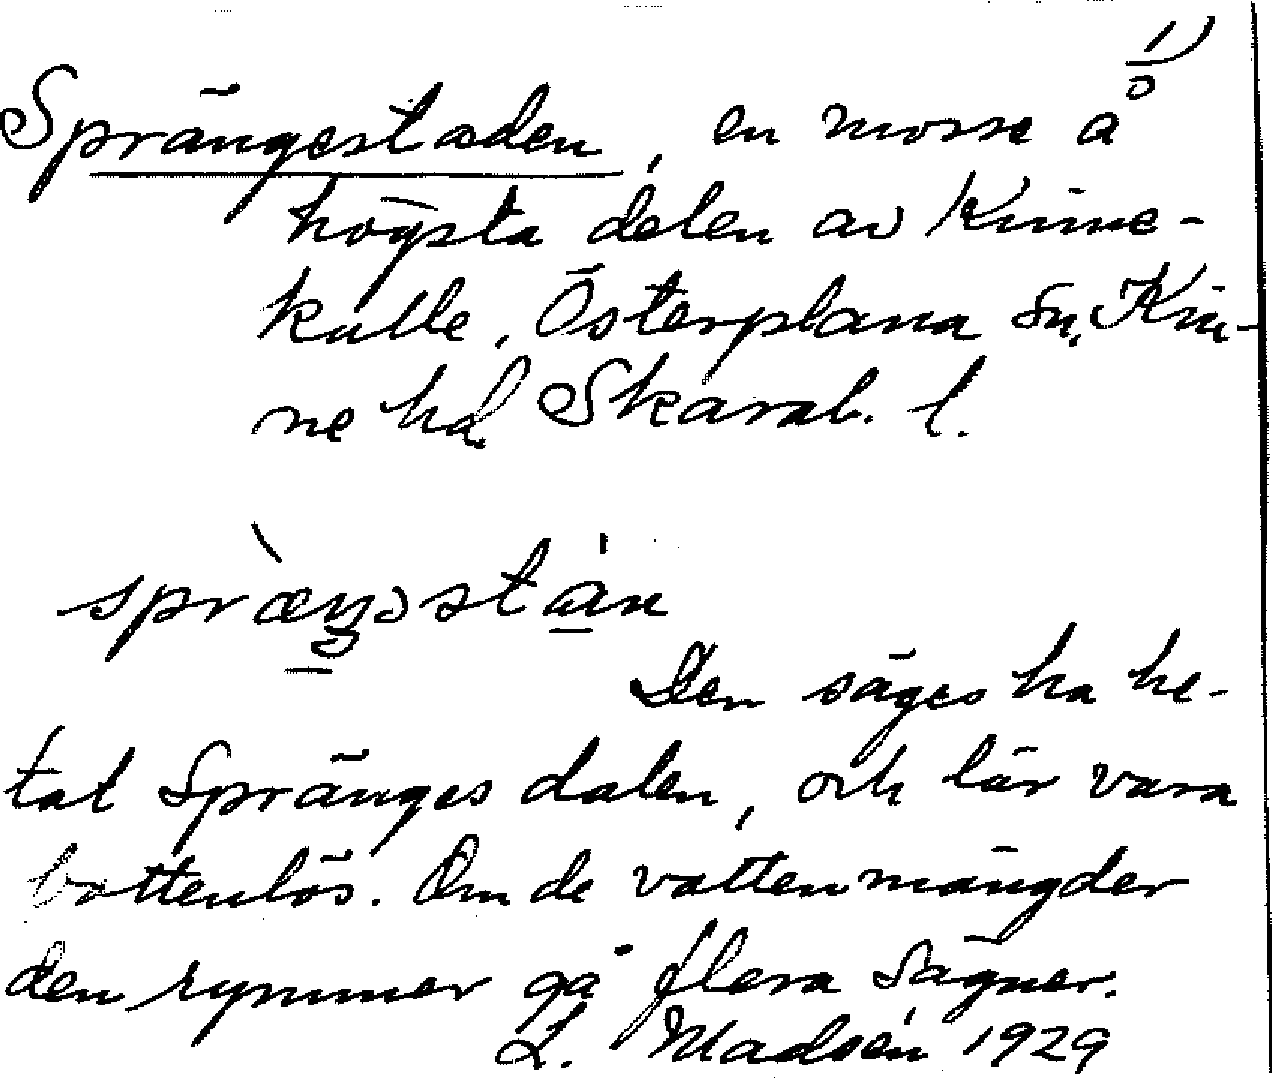 1)
Sprängestaden, en mosse å
högsta delen av Kinne-
kulle, Österplana Sn, Kin-
ne hd. Skarab. l.
spræŋəstån
Den säges ha he-
tat Sprängesdalen, och lär vara
bottenlös. Om de vattenmängder
den rymmer gå flera sägner.
L. Madsén 1929